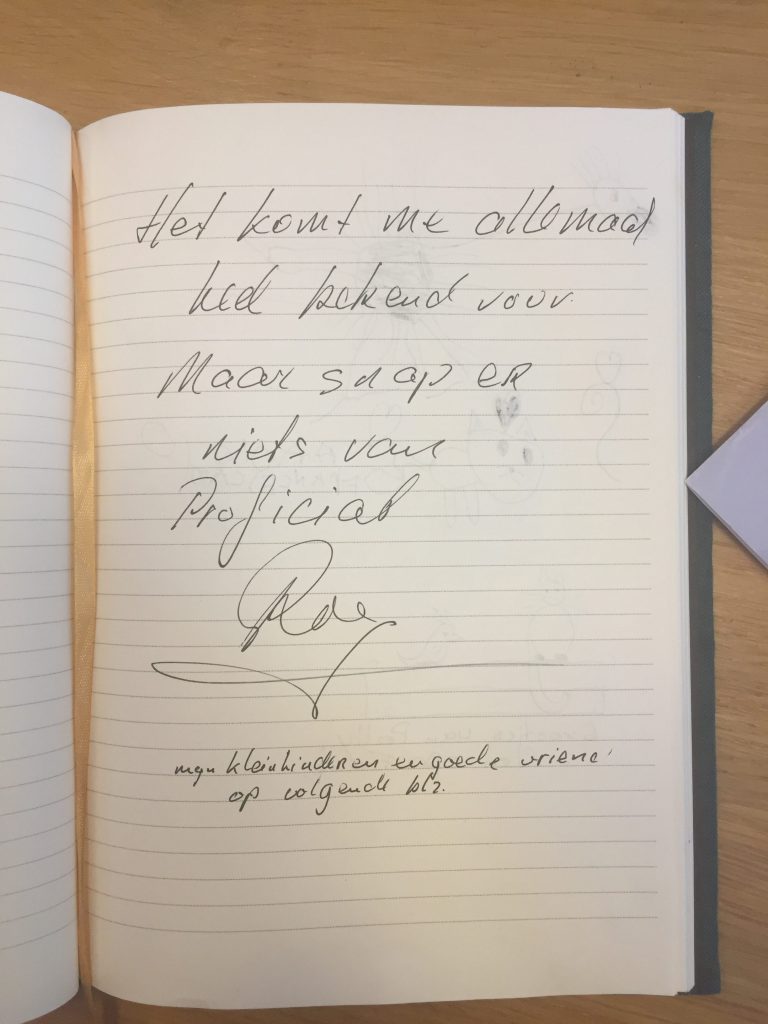 Het komt me allemaal
heel bekend voor
Maar snap er
niets van
Proficiat
mijn kleinkinderen en goede vriend
op volgende blz.